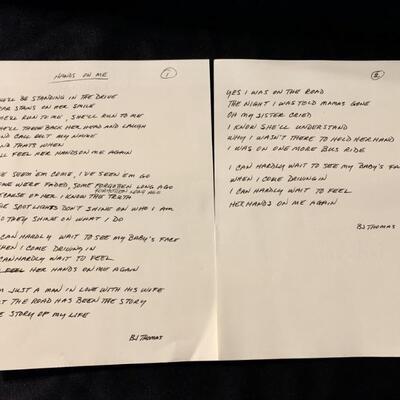 HANDS ON ME 1
E'LL BE STANDING IN THE DRIVE
EAR STAINS ON HER SMILE
HE'LL RUN TO ME, SHE'LL RUN TO ME
HE'LL THROW BACK HER HEAD AND LAUGH
ND CALL OUT MY NAME
ND THATS WHEN
LL FEEL HER HANDS ON ME AGAIN
VE SEEN 'EM COME, I'VE SEEN 'EM GO
OME WERE FADED, SOME FORGOTTEN LONG AGO
FORGOTTEN LONG AGO
ECAUSE OF HER I KNOW THE TRUTH
HE SPOTLIGHTS DON'T SHINE ON WHO I AM
O THEY SHINE ON WHAT I DO
CAN HARDLY WAIT TO SEE MY BABY'S FACE
HEN I COME DRIVING IN
CAN HARDLY WAIT TO FEEL
FEEL HER HANDS ON ME AGAIN
M JUST A MAN IN LOVE WITH HIS WIFE
T THE ROAD HAS BEEN THE STORY
E STORY OF MY LIFE
BJ THOMAS
2
YES I WAS ON THE ROAD
THE NIGHT I WAS TOLD MAMAS GONE
OH MY SISTER CRIED
I KNOW SHE'LL UNDERSTAND
WHY I WASN'T THERE TO HOLD HER HAND
I WAS ON ONE MORE BUS RIDE
I CAN HARDLY WAIT TO SEE MY BABY'S FACE
WHEN I COME DRIVING IN
I CAN HARDLY WAIT TO FEEL
HER HANDS ON ME AGAIN
BJ THOMAS